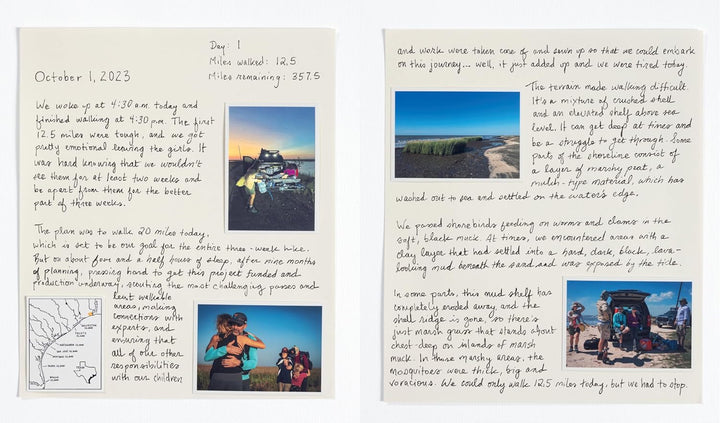 October 1, 2023
Day: 1
Miles walked: 12.5
Miles remaining: 357.5
We woke up at 4:30 a.m. today and
finished walking at 4:30 p.m. The first
12.5 miles were tough, and we got
pretty emotional leaving the girls. It
was hard knowing that we wouldn't
see them for at least two weeks and
be apart from them for the better
part of three weeks.
The plan was to walk 20 miles today,
which is set to be our goal for the entire three-week hike.
But on about four and a half hours of sleep, after nine months
of planning, pressing hard to get this project funded and
production underway, scouting the most challenging passes and
least walkable
areas, making
connections with
experts, and
ensuring that
all of our other
responsibilities
with our children
and work were taken care of and sewn up so that we could embark
on this journey... well, it just added up and we were tired today.
The terrain made walking difficult.
It's a mixture of crushed shell
and an elevated shelf above sea
level. It can get deep at times and
be a struggle to get through. Some
parts of the shoreline consist of
a layer of marshy peat, a
mulch-type material, which has
washed out to sea and settled on the water's edge.
We passed shorebirds feeding on worms and clams in the
soft, black muck. At times, we encountered areas with a
clay layer that had settled into a hard, dark, black, lava-
looking mud beneath the sand and was exposed by the tide.
In some parts, this mud shelf has
completely eroded away and the
shell ridge is gone, so there's
just marsh grass that stands about
chest-deep on islands of marsh
muck. In those marshy areas, the
mosquitoes were thick, big and
voracious. We could only walk 12.5 miles today, but we had to stop.